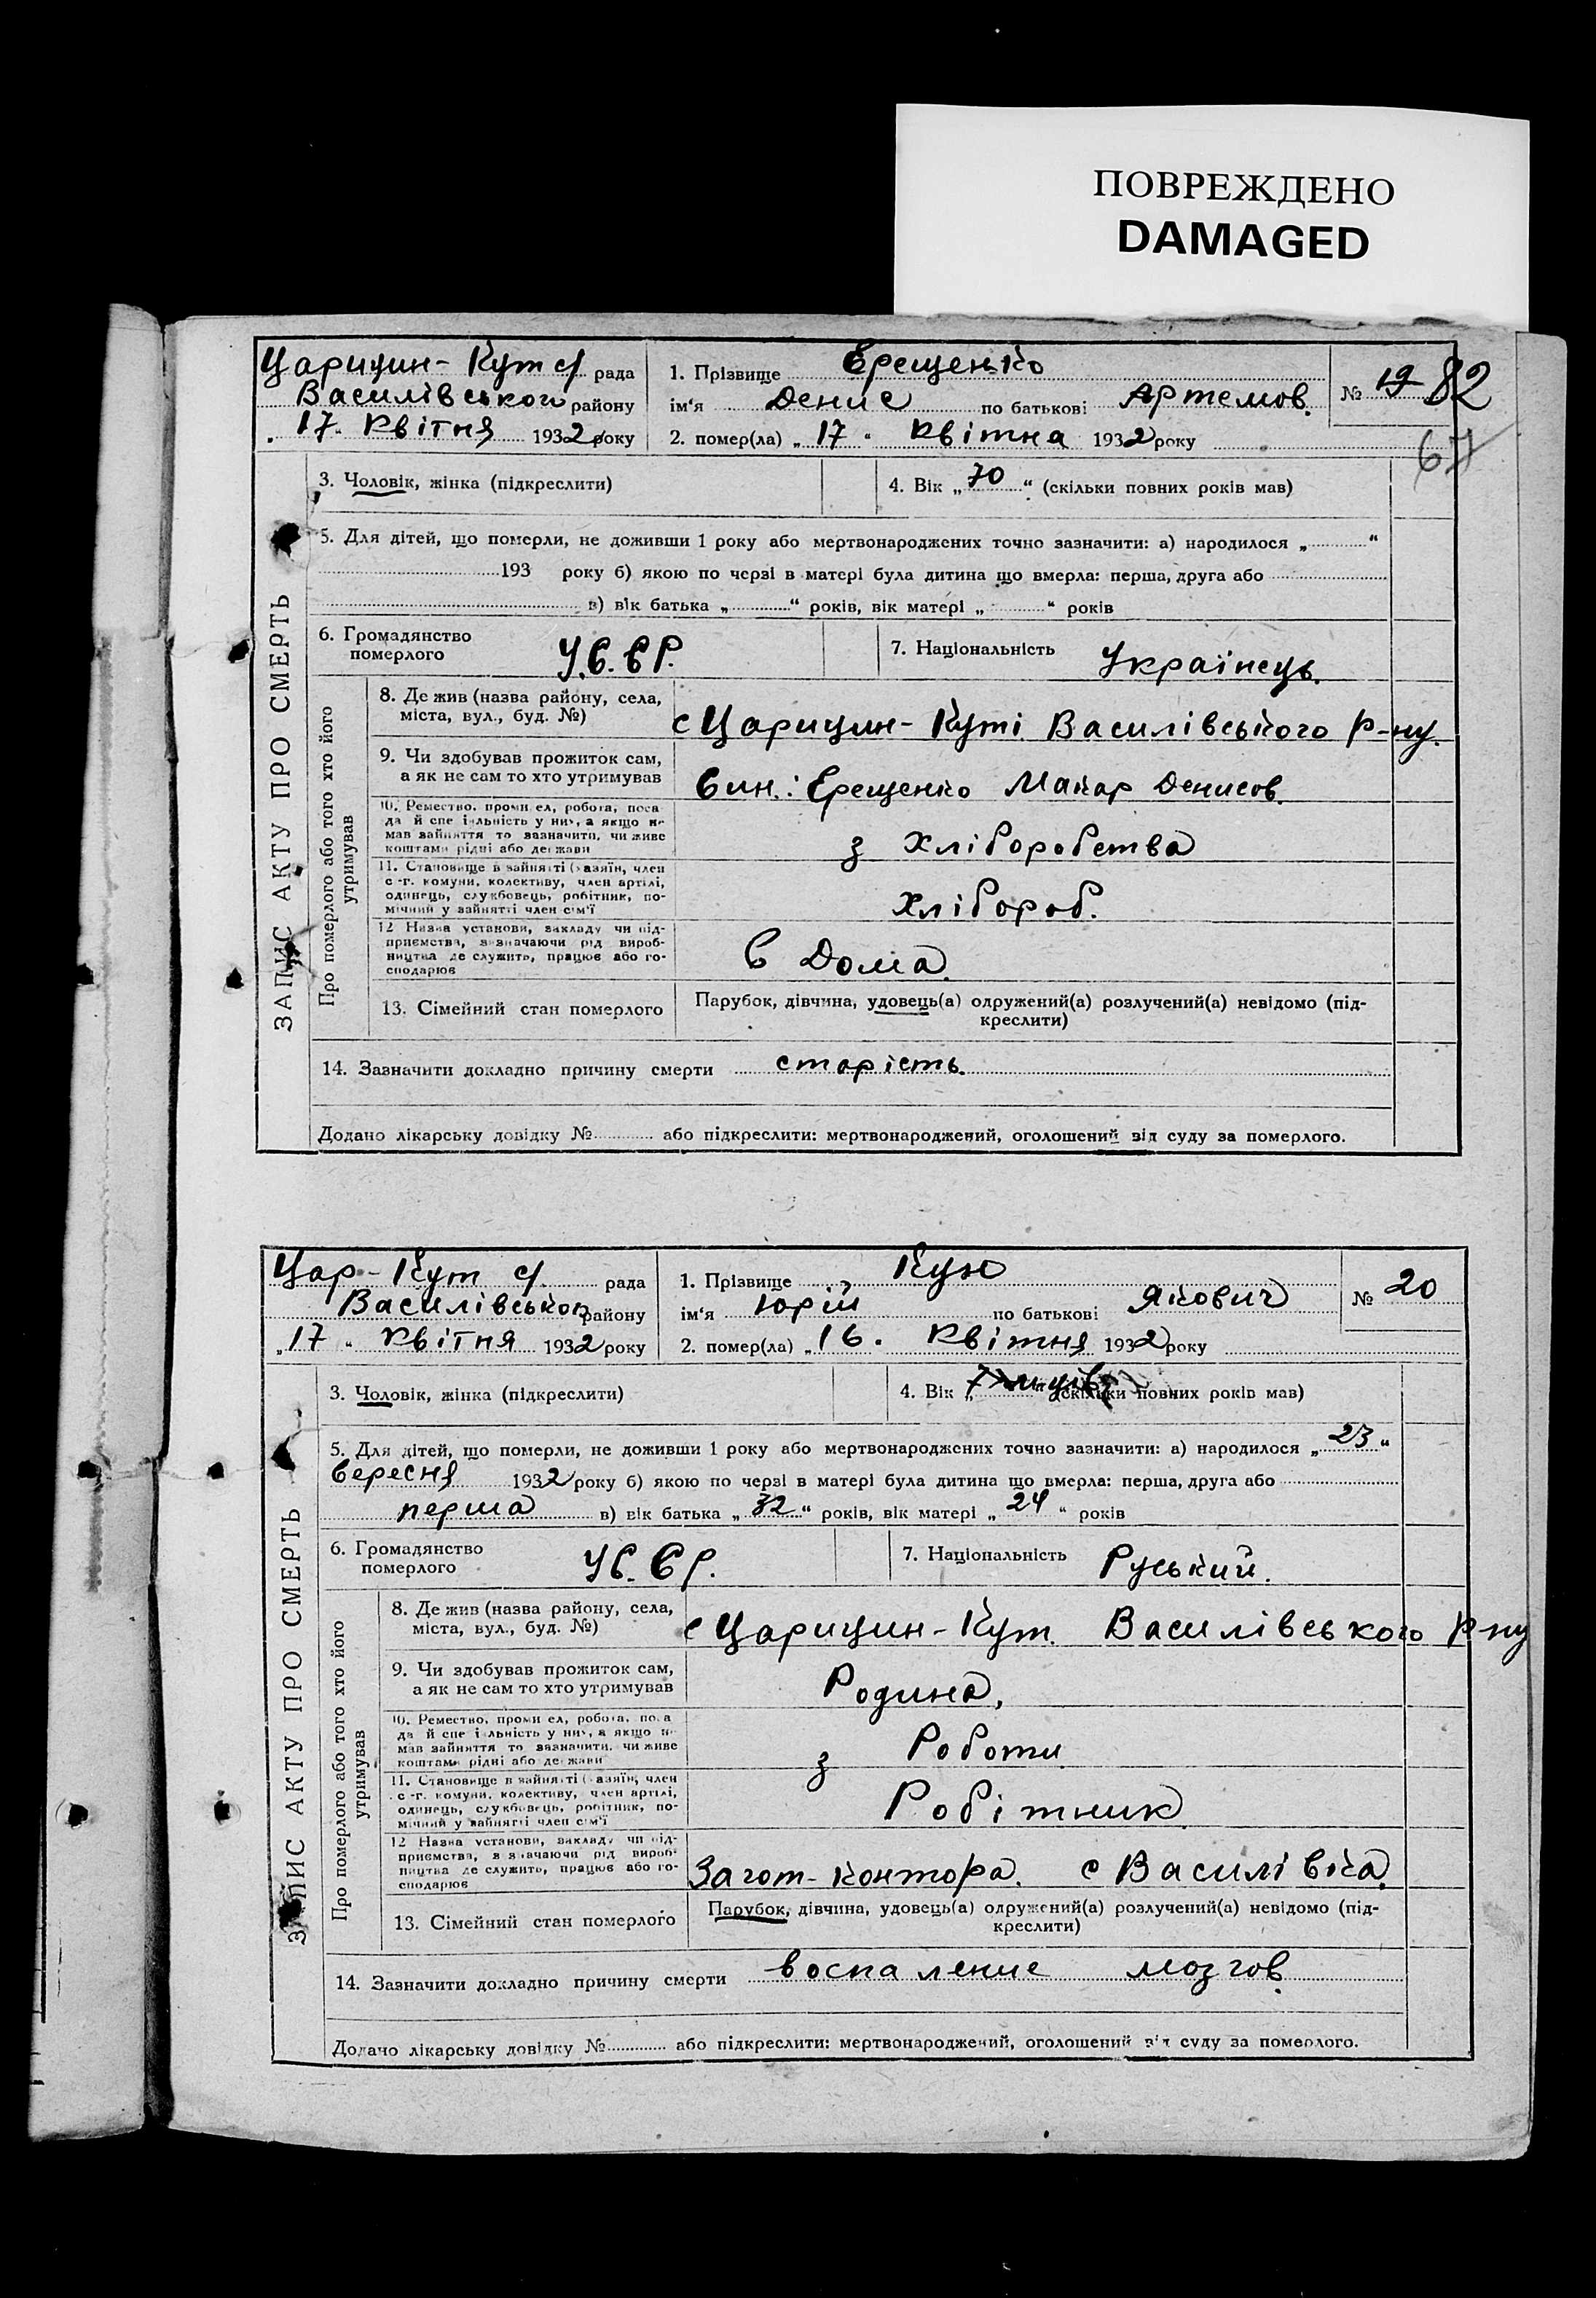 ПОВРЕЖДЕНО
DAMAGED
Царицин-Кут с/ рада
Василівського району
„17“ Квітня 1932 року
1. Прізвище Єрещенко
ім‘я Денис по батькові Артемов.
2. помер(ла) „17“ Квітна 1932 року
№ 19 82
67
ЗАПИС АКТУ ПРО СМЕРТЬ
3. Чоловік, жінка (підкреслити)
4. Вік „70“ (скільки повних років мав)
5. Для дітей, що померли, не доживши 1 року або мертвонароджених точно зазначити: а) народилося „ “
193 року б) якою по черзі в матері була дитина що вмерла: перша, друга або
в) вік батька „ “ років, вік матері „ “ років
6. Громадянство
померлого
У.С.СР.
7. Національність Українець.
Про померлого або того хто його
утримував
8. Де жив (назва району, села,
міста, вул., буд. №)
с Царицин-Куті Василівського р-ну.
9. Чи здобував прожиток сам,
а як не сам то хто утримував
Син.: Єрещенко Макар Денисов.
10. Ремество, проми ел, робота, поса
да й спе іяльність у них, а якщо не
мав зайняття то зазначити, чи живе
коштами рідні або держави
з хліборобства
11. Становище в зайнятті (хазяїн, член
с.-г. комуни, колективу, член артілі,
одинець, службовець, робітник, по-
мічний у зайнятті член сім‘ї
Хлібороб.
12 Назва установи, закладу чи під-
приємства, зазначаючи рід вироб-
ництва де служить, працює або го-
сподарює
в Дома.
13. Сімейний стан померлого
Парубок, дівчина, удовець(а) одружений(а) розлучений(а) невідомо (під-
креслити)
14. Зазначити докладно причину смерти старість.
Додано лікарську довідку № або підкреслити: мертвонароджений, оголошений від суду за померлого.
Цар-Кут с/ рада
Василівського району
„17“ Квітня 1932 року
1. Прізвище Кую
ім‘я Юрій по батькові Якович
2. помер(ла) „16“ Квітня 1932 року
№ 20
ЗАПИС АКТУ ПРО СМЕРТЬ
3. Чоловік, жінка (підкреслити)
4. Вік „ 7 “ (скільки повних років мав)
5. Для дітей, що померли, не доживши 1 року або мертвонароджених точно зазначити: а) народилося „23“
вересня 1932 року б) якою по черзі в матері була дитина що вмерла: перша, друга або
перша в) вік батька „32“ років, вік матері „24“ років
6. Громадянство
померлого
УС.СР.
7. Національність Руський.
Про померлого або того хто його
утримував
8. Де жив (назва району, села,
міста, вул., буд. №)
с Царицин-Кут. Василівського р-ну
9. Чи здобував прожиток сам,
а як не сам то хто утримував
Родина,
10. Ремество, проми ел, робота, поса
да й спе іяльність у них, а якщо не
мав зайняття то зазначити, чи живе
коштами рідні або держави
з Роботи
11. Становище в зайнятті (хазяїн, член
с.-г. комуни, колективу, член артілі,
одинець, службовець, робітник, по-
мічний у зайнятті член сім‘ї
Робітник
12 Назва установи, закладу чи під-
приємства, зазначаючи рід вироб-
ництва де служить, працює або го-
сподарює
Загот-контора. с Василівка.
13. Сімейний стан померлого
Парубок, дівчина, удовець(а) одружений(а) розлучений(а) невідомо (під-
креслити)
14. Зазначити докладно причину смерти воспаление мозгов.
Додано лікарську довідку № або підкреслити: мертвонароджений, оголошений від суду за померлого.